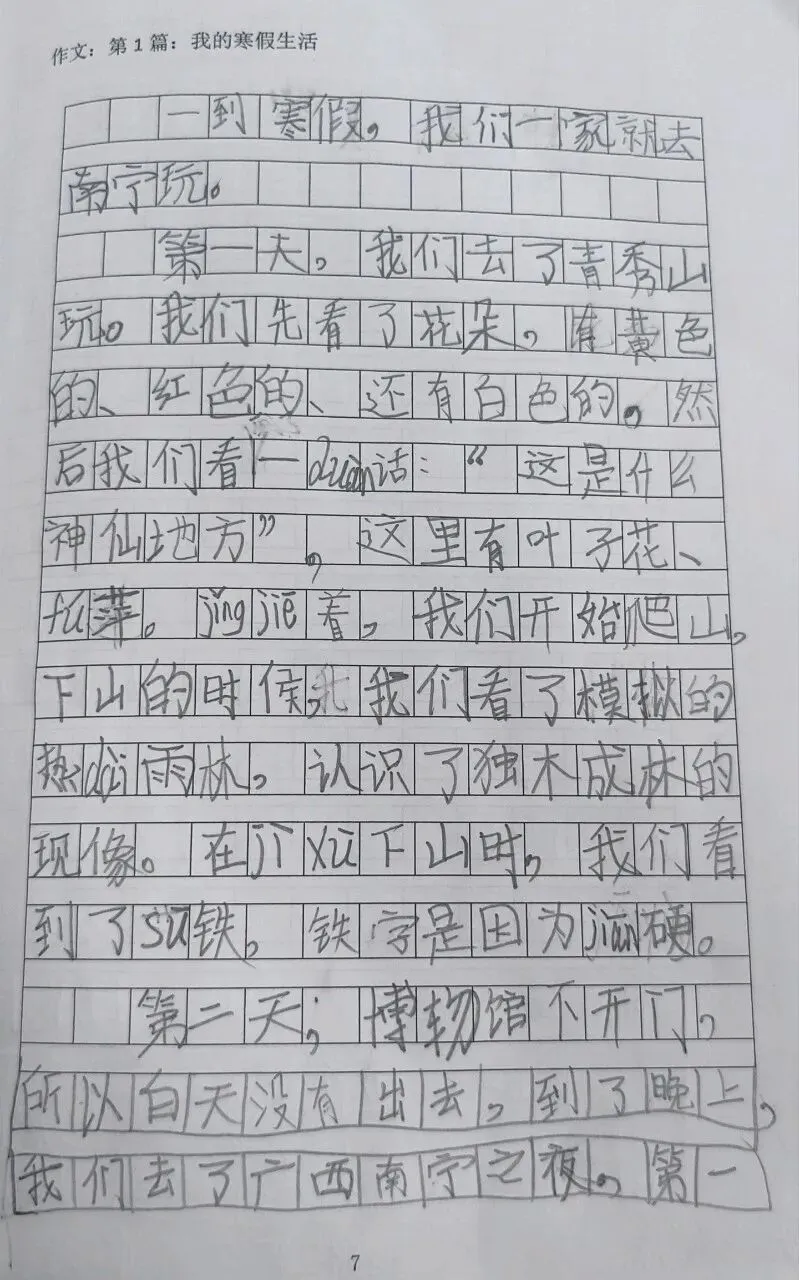 作文：第1篇：我的寒假生活
一到寒假，我们一家就去
南宁玩。
第一天，我们去了青秀山
玩。我们先看了花朵，有黄色
的、红色的、还有白色的，然
后我们看一duàn话：“这是什么
神仙地方”，这里有叶子花、
fú萍。jǐng jiē着，我们开始爬山，
下山的时侯，我们看了模拟的
热dài雨林，认识了独木成林的
现像。在jì xù下山时，我们看
到了sū铁，铁字是因为jiān硬。
第二天，博物馆不开门，
所以白天没有出去，到了晚上，
我们去了广西南宁之夜，第一
7